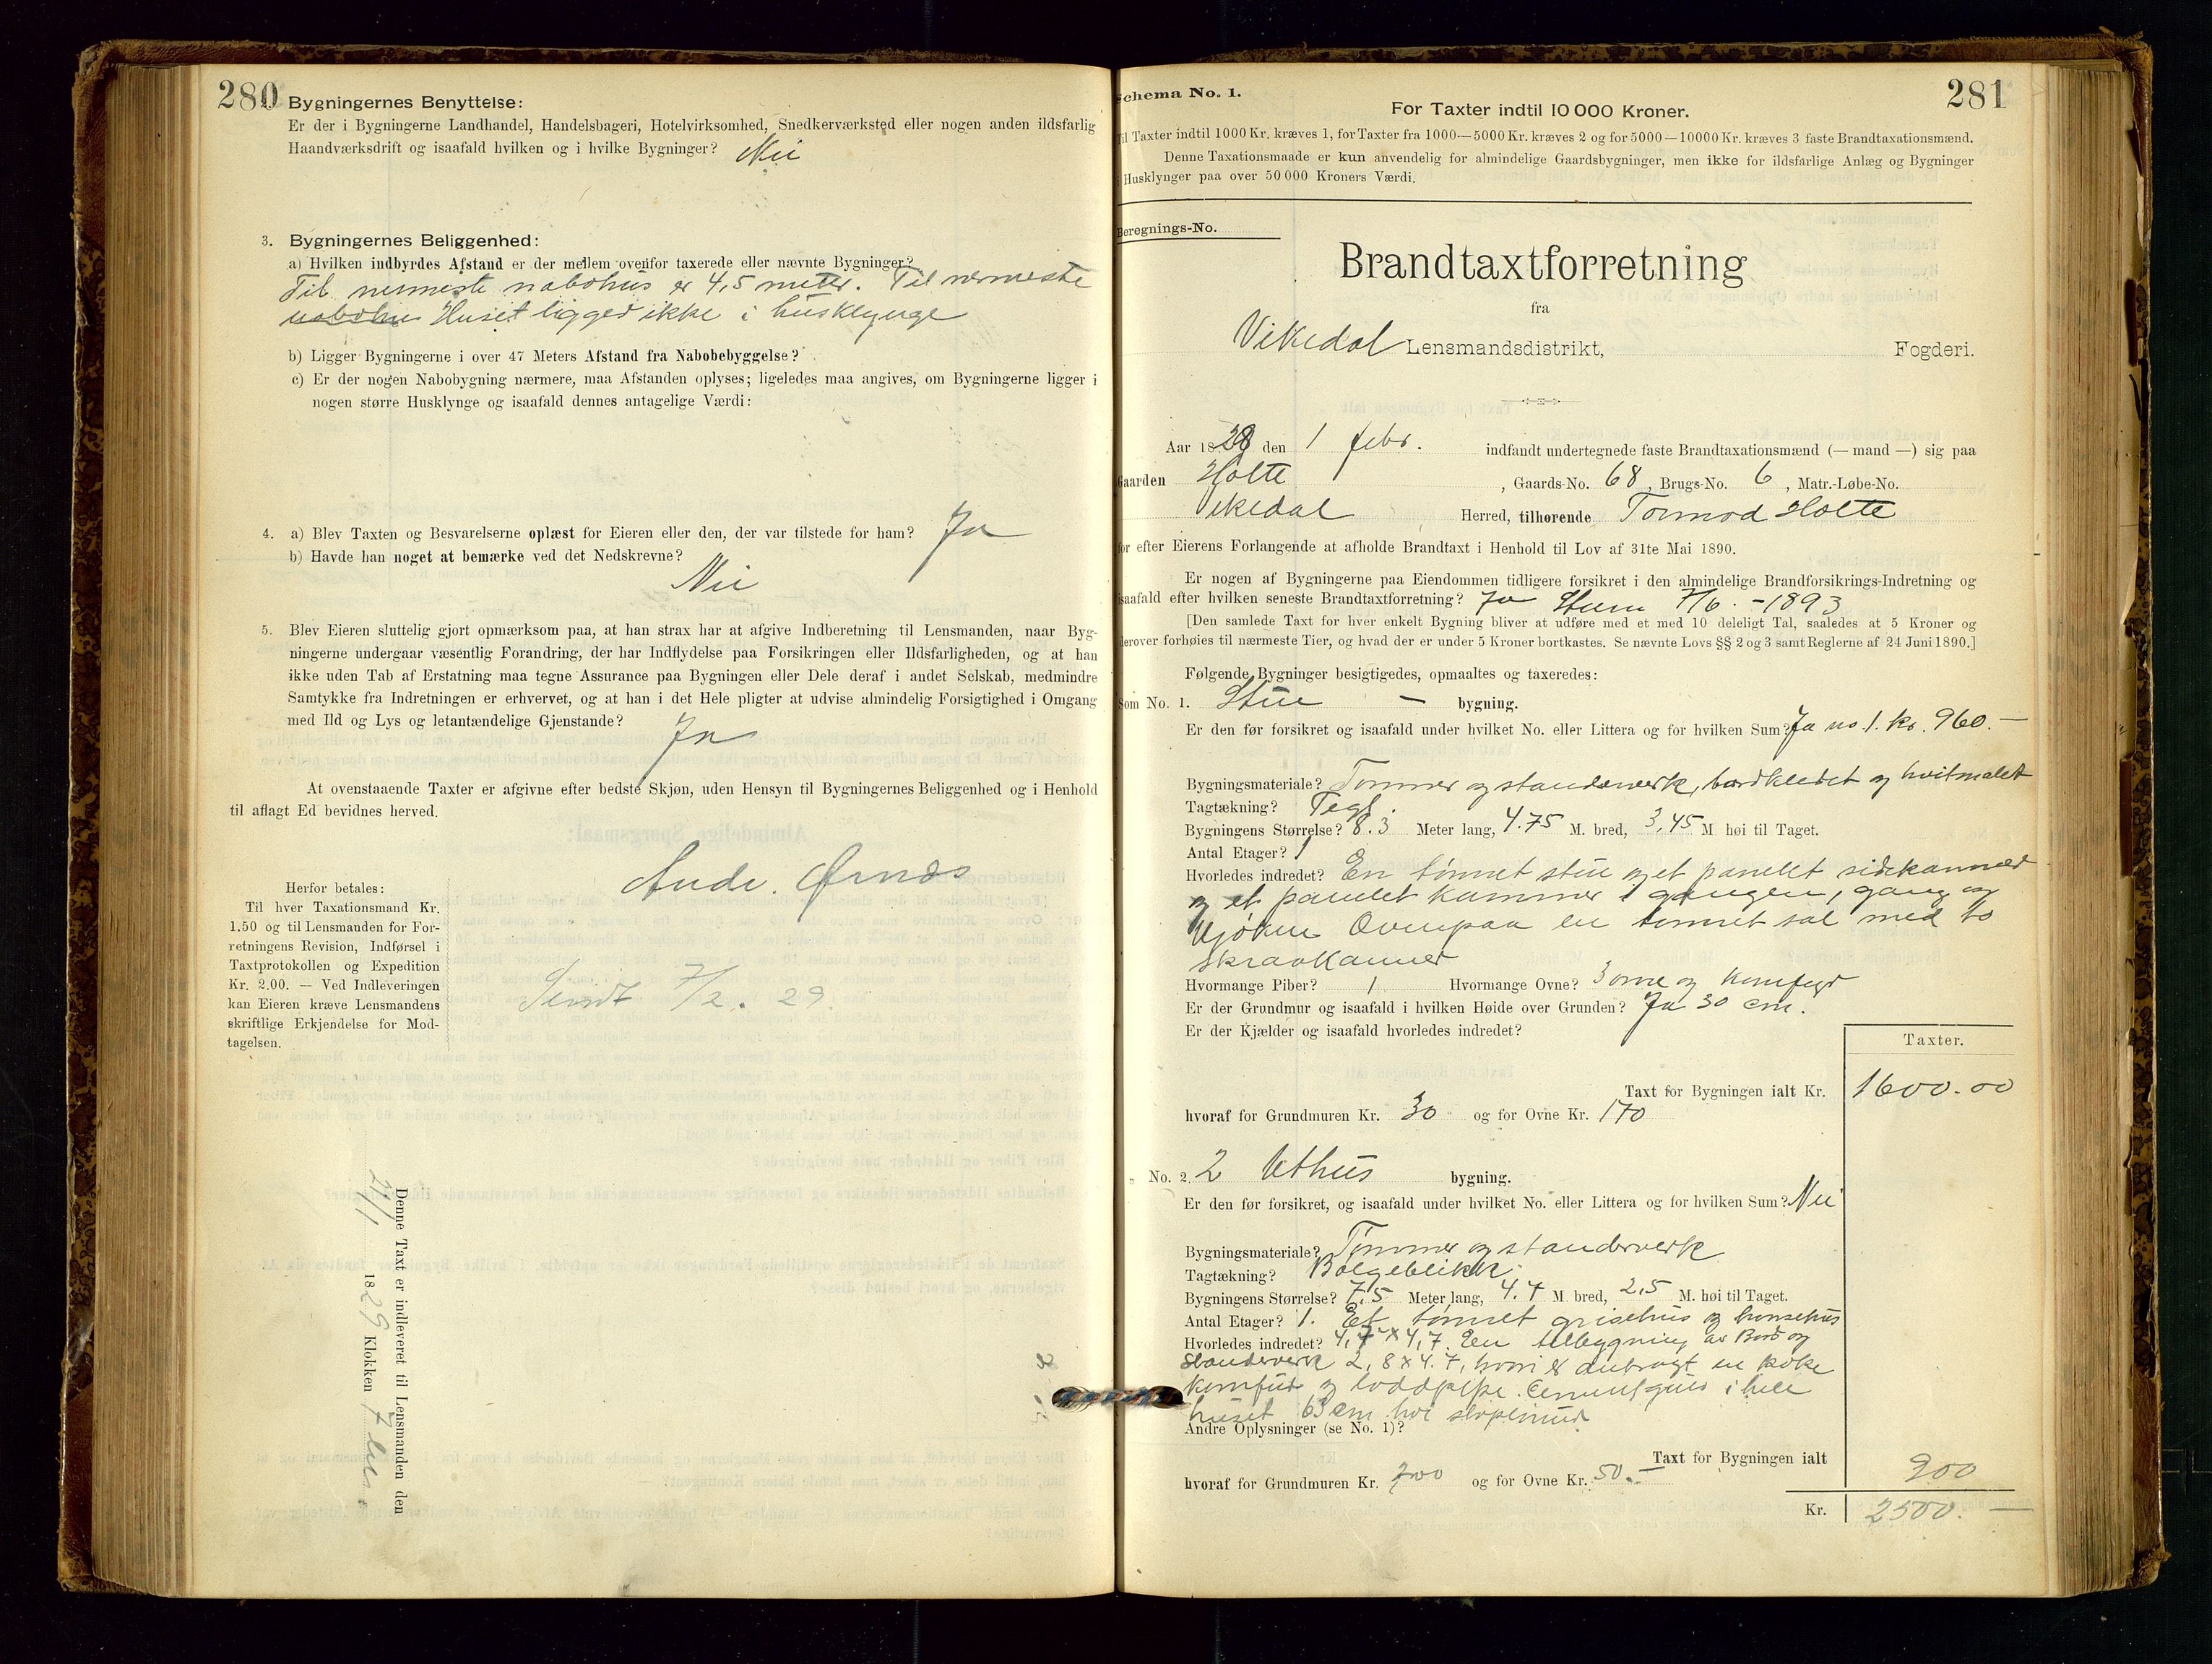 280
Bygningernes Benyttelse:
Er der i Bygningerne Landhandel, Handelsbageri, Hotelvirksomhed, Snedkerværksted eller nogen anden ildsfarlig
Haandværksdrift og isaafald hvilken og i hvilke Bygninger? Nei
3. Bygningernes Beliggenhed:
a) Hvilken indbyrdes Afstand er der mellem ovenfor taxerede eller nævnte Bygninger?
Til nermeste nabohus er 4,5 meter. Til nermeste
Huset ligger ikke i husklynge
b) Ligger Bygningerne i over 47 Meters Afstand fra Nabobebyggelse?
c) Er der nogen Nabobygning nærmere, maa Afstanden oplyses; ligeledes maa angives, om Bygningerne ligger i
nogen større Husklynge og isaafald dennes antagelige Værdi:
4. a) Blev Taxten og Besvarelserne oplæst for Eieren eller den, der var tilstede for ham? Ja
b) Havde han noget at bemærke ved det Nedskrevne?
Nei
5. Blev Eieren sluttelig gjort opmærksom paa, at han strax har at afgive Indberetning til Lensmanden, naar Byg-
ningerne undergaar væsentlig Forandring, der har Indflydelse paa Forsikringen eller Ildsfarligheden, og at han
ikke uden Tab af Erstatning maa tegne Assurance paa Bygningen eller Dele deraf i andet Selskab, medmindre
Samtykke fra Indretningen er erhvervet, og at han i det Hele pligter at udvise almindelig Forsigtighed i Omgang
med Ild og Lys og letantændelige Gjenstande?
Ja
At ovenstaaende Taxter er afgivne efter bedste Skjøn, uden Hensyn til Bygningernes Beliggenhed og i Henhold
til aflagt Ed bevidnes herved.
Andr. Ørnes
Herfor betales:
Til hver Taxationsmand Kr.
1.50 og til Lensmanden for For-
retningens Revision, Indførsel i
Taxtprotokollen og Expedition
Kr. 2.00. — Ved Indleveringen
kan Eieren kræve Lensmandens
skriftlige Erkjendelse for Mod-
tagelsen.
Sendt 7/2. 29.
Denne Taxt er indleveret til Lensmanden den
1829 Klokken 7
281
Schema No. 1.
For Taxter indtil 10 000 Kroner.
Til Taxter indtil 1000 Kr. kræves 1, for Taxter fra 1000—5000 Kr. kræves 2 og for 5000—10000 Kr. kræves 3 faste Brandtaxationsmænd.
Denne Taxationsmaade er kun anvendelig for almindelige Gaardsbygninger, men ikke for ildsfarlige Anlæg og Bygninger
i Husklynger paa over 50 000 Kroners Værdi.
Beregnings-No.
Brandtaxtforretning
fra
Vikedal Lensmandsdistrikt, Fogderi.
Aar 1828 den 1 febr. indfandt undertegnede faste Brandtaxationsmænd (— mand —) sig paa
Gaarden Holte, Gaards-No. 68, Brugs-No. 6, Matr.-Løbe-No.
Vikedal Herred, tilhørende Tormod Holte
for efter Eierens Forlangende at afholde Brandtaxt i Henhold til Lov af 31te Mai 1890.
Er nogen af Bygningerne paa Eiendommen tidligere forsikret i den almindelige Brandforsikrings-Indretning og
isaafald efter hvilken seneste Brandtaxtforretning? Ja 7/6. -1893
[Den samlede Taxt for hver enkelt Bygning bliver at udføre med et med 10 deleligt Tal, saaledes at 5 Kroner og
derover forhøies til nærmeste Tier, og hvad der er under 5 Kroner bortkastes. Se nævnte Lovs §§ 2 og 3 samt Reglerne af 24 Juni 1890.]
Følgende Bygninger besigtigedes, opmaaltes og taxeredes:
Som No. 1. Stue - bygning.
Er den før forsikret og isaafald under hvilket No. eller Littera og for hvilken Sum? Ja no 1. kr. 960.—
Bygningsmateriale? Tømmer og standerverk, bordkledet og hvitmalet
Tagtækning? Tegl.
Bygningens Størrelse? 8.3 Meter lang, 4.75 M. bred, 3,45 M høi til Taget.
Antal Etager? 1
Hvorledes indredet? En tømret stue og et panelet sidekammer
og et panelet kammer i gangen, gang og
kjøken Ovenpaa en tømret sal med to
skraakammer
Hvormange Piber? 1 Hvormange Ovne? 3 ovne og komfyr
Er der Grundmur og isaafald i hvilken Høide over Grunden? Ja 30 cm.
Er der Kjælder og isaafald hvorledes indredet?
Taxter.
Taxt for Bygningen ialt Kr. 1600.00
hvoraf for Grundmuren Kr. 30 og for Ovne Kr. 170
No. 2. 2 Uthus bygning.
Er den før forsikret, og isaafald under hvilket No. eller Littera og for hvilken Sum? Nei
Bygningsmateriale? Tømmer og standerverk
Tagtækning? Bølgeblikk.
Bygningens Størrelse? 7,5 Meter lang, 4.7 M. bred, 2,5 M. høi til Taget.
Antal Etager? 1. Et tømret grisehus og hønsehus
Hvorledes indredet? 4,7 x 4,7. En tilbygning av Bord og
standerverk 2,8 x 4.7, hvori er anbragt en koke
komfur og loddpipe. i hele
huset 63 cm høi
Andre Oplysninger (se No. 1)?
Taxt for Bygningen ialt 900
hvoraf for Grundmuren Kr. 200 og for Ovne Kr. 50.—
Kr. 2500.—